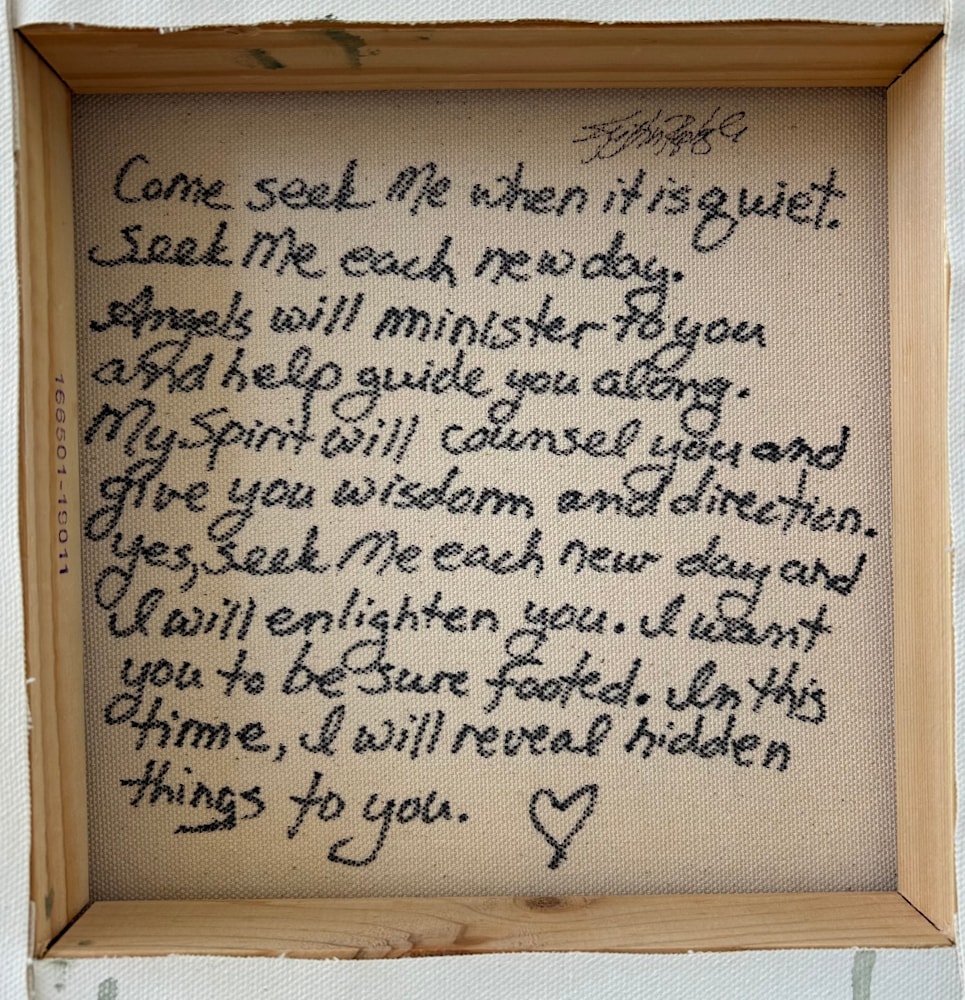 Come seek Me when it is quiet.
Seek Me each new day.
Angels will minister to you
and help guide you along.
My Spirit will counsel you and
give you wisdom and direction.
yes, seek Me each new day and
I will enlighten you. I want
you to be sure footed. In this
time, I will reveal hidden
things to you. ♡
166501-19011